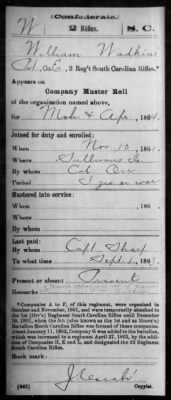 (Confederate.)
W 2 Rifles. S. C.
William Wadkins
Pvt, Co. E, 2 Reg't South Carolina Rifles.*
Appears on
Company Muster Roll
of the organization named above,
for Mch & Apr, 1864
Joined for duty and enrolled:
When Nov 10, 186
Where Sullivans Is.
By whom Col Orr
Period 3 yrs or war
Mustered into service:
When , 186 .
Where
By whom
Last paid:
By whom Capt Sharp
To what time Sept 1, 186
Present or absent Present
Remarks:
*Companies A to F, of this regiment, were organized in
October and November, 1861, and were temporarily attached to
the 1st (Orr's) Regiment South Carolina Rifles until December
16, 1861, when the 5th (also known as the 1st and as Orr's)
Battalion South Carolina Rifles was formed of these companies.
About January 11, 1862, Company G was added to the battalion,
which was increased to a regiment April 27, 1862, by the addi-
tion of Companies H, K and L, and designated the 2d Regiment
South Carolina Rifles.
Book mark:
(642) Copyist.